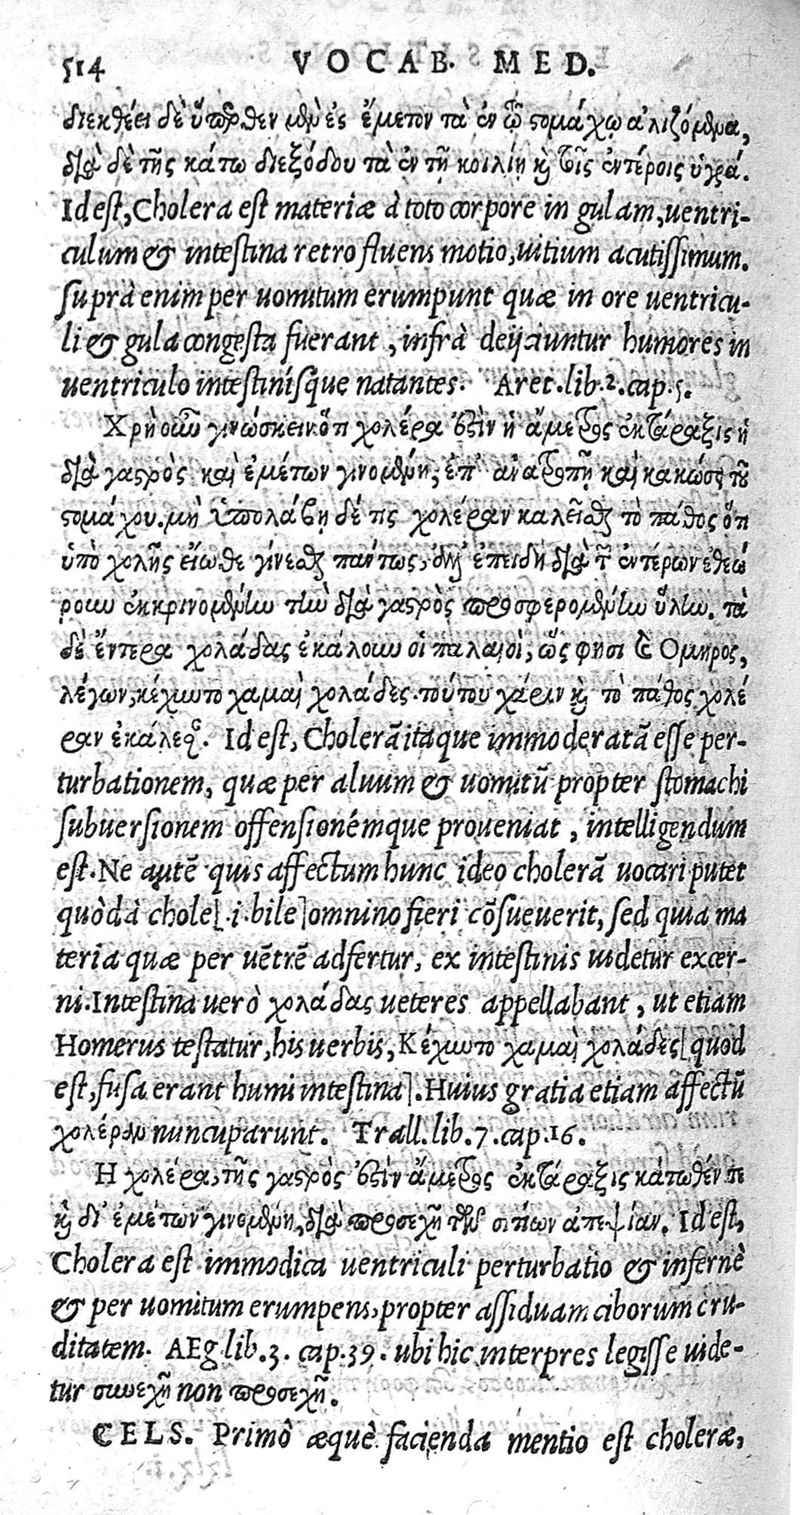 514 VOCAB. MED.
διεκθέει δὲ ὕπερθεν μὲν ἐς ἔμετον τὰ ἐν τῷ στομάχῳ ἁλιζόμενα,
διὰ δὲ τῆς κάτω διεξόδου τὰ ἐν τῇ κοιλίῃ καὶ τοῖς ἐντέροις ὑγρά.
Id est, Cholera est materiæ à toto corpore in gulam, uentri-
culum & intestina retro fluens motio, uitium acutissimum.
suprà enim per uomitum erumpunt quæ in ore uentricu-
li & gula congesta fuerant, infrà deijciuntur humores in
uentriculo intestinísque natantes. Aret. lib. 2. cap. 5.
Χρὴ οὖν γινώσκειν ὅτι χολέρα ἐστὶν ἡ ἄμετρος ἐκτάραξις ἡ
διὰ γαστρὸς καὶ ἐμέτων γινομένη, ἐπ' ἀνατροπῇ καὶ κακώσει τοῦ
στομάχου. μὴ ὑπολάβῃ δέ τις χολέραν καλεῖσθαι τὸ πάθος ὅτι
ὑπὸ χολῆς εἴωθε γίνεσθαι πάντως, ἀλλ' ἐπειδὴ διὰ τῶν ἐντέρων ἐθεώ
ρουν ἐκκρινομένην τὴν διὰ γαστρὸς προσφερομένην ὕλην. τὰ
δὲ ἔντερα χολάδας ἐκάλουν οἱ παλαιοὶ, ὥς φησι καὶ Ομηρος,
λέγων, κέχυντο χαμαὶ χολάδες. τούτου χάριν καὶ τὸ πάθος χολέ
ραν ἐκάλεσαν. Id est, Cholerã itaque immoderatã esse per-
turbationem, quæ per aluum & uomitũ propter stomachi
subuersionem offensionémque proueniat, intelligendum
est. Ne autẽ quis affectum hunc ideo cholerã uocari putet
quòd à chole[.i. bile] omnino fieri cõsueuerit, sed quia ma
teria quæ per uẽtrẽ adfertur, ex intestinis uidetur excer-
ni. Intestina uerò χολάδας ueteres appellabant, ut etiam
Homerus testatur, his uerbis, Κέχυντο χαμαὶ χολάδες[quod
est, fusa erant humi intestina]. Huius gratia etiam affectũ
χολέραν nuncuparunt. Trall. lib. 7. cap. 16.
Η χολέρα, τῆς γαστρὸς ἐστὶν ἄμετρος ἐκτάραξις κάτωθέν τε
καὶ δι' ἐμέτων γινομένη, διὰ προσεχῆ τῶν σιτίων ἀπεψίαν. Id est,
Cholera est immodica uentriculi perturbatio & infernè
& per uomitum erumpens, propter assiduam ciborum cru-
ditatem. AEg lib. 3. cap. 39. ubi hic interpres legisse uide-
tur συνεχῆ non προσεχῆ.
CELS. Primò æquè facienda mentio est choleræ,